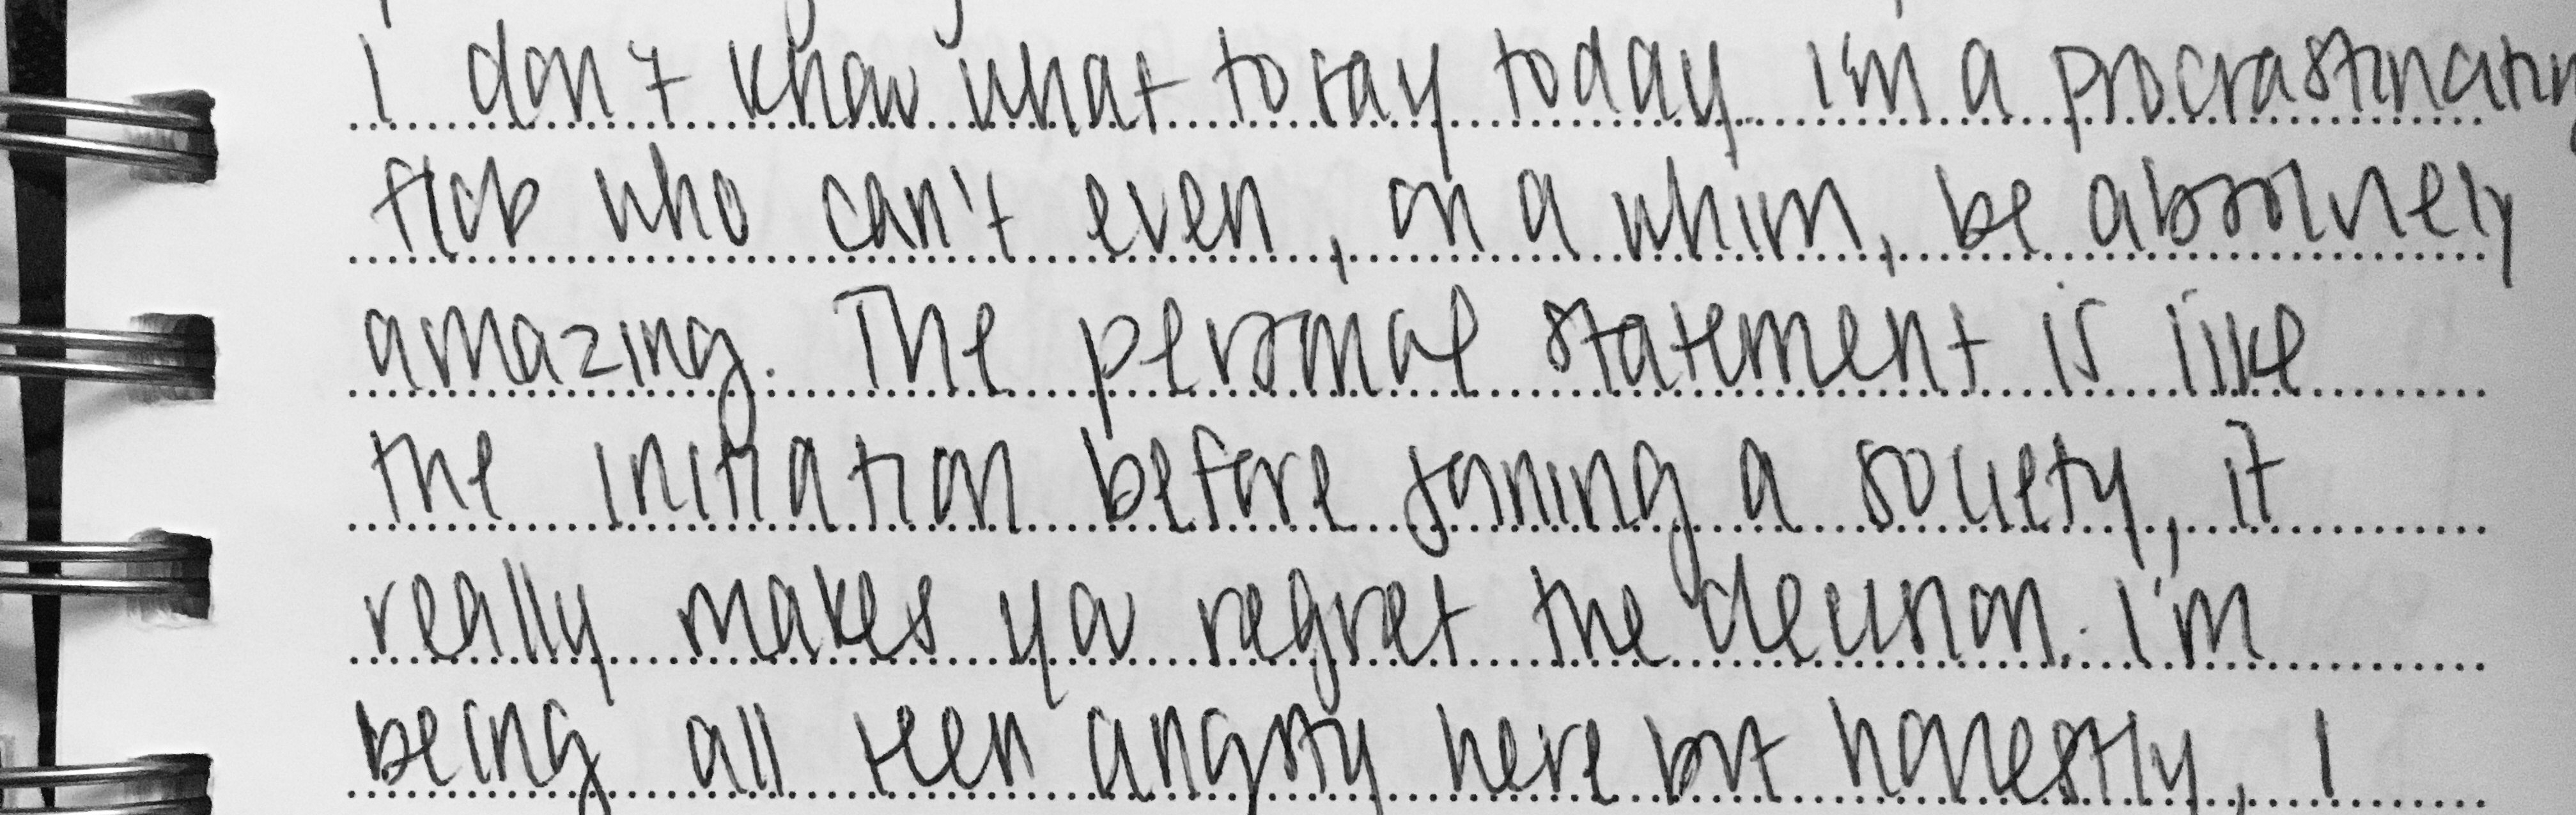 I don't know what to say today. I'm a procrastinating
who can't even, on a whim, be absolutely
amazing. The personal statement is like
the initiation before joining a society, it
really makes you regret the decision. I'm
being all teen angsty here but honestly, I